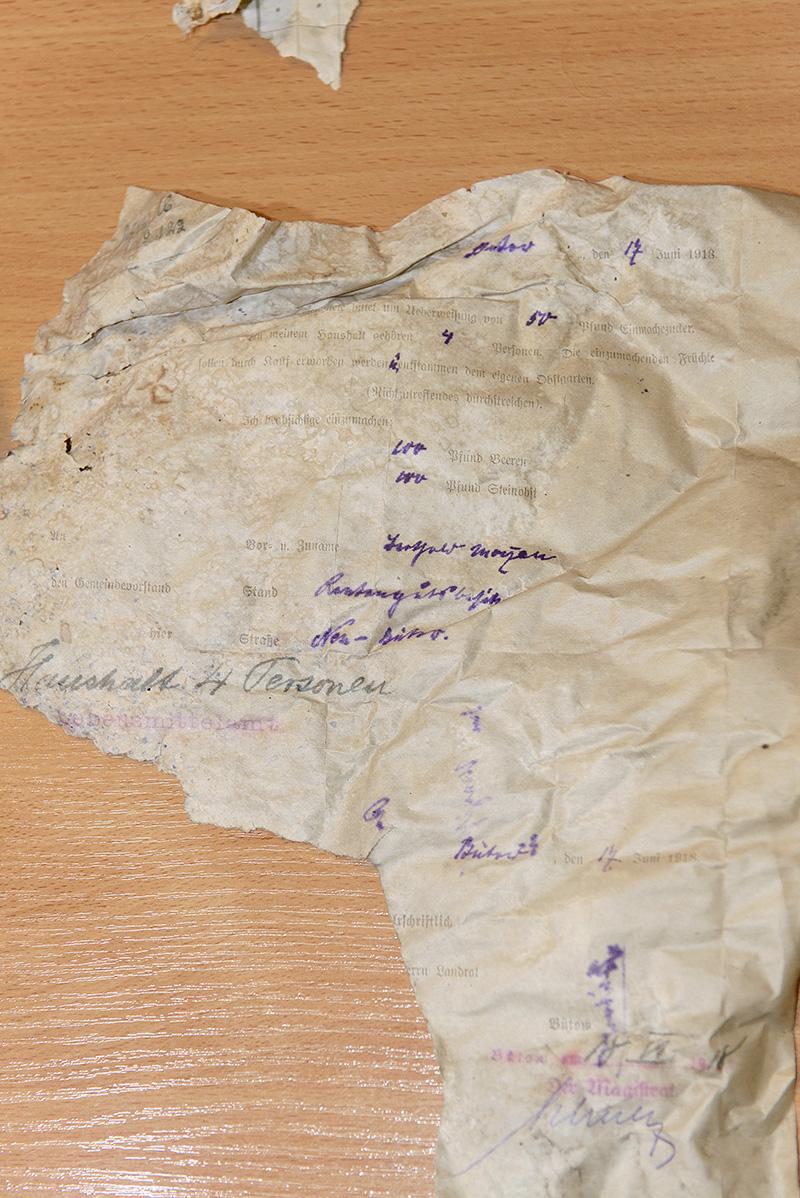 122
Bütow, den 17 Juni 1918.
bittet um Ueberweisung von 50 Pfund Einmachezucker.
Zu meinem Haushalt gehören 4 Personen. Die einzumachenden Früchte
sollen durch Kauf erworben werden entstammen dem eigenen Obstgarten.
(Nichtzutreffendes durchstreichen).
Ich beabsichtige einzumachen:
100 Pfund Beeren
100 Pfund Steinobst
An
Vor- u. Zuname
den Gemeindevorstand Stand Rentengutsbesitz
hier Straße Neu-Bütow.
Haushalt 4 Personen
Lebensmittelamt
Bütow, den 17 Juni 1918.
schriftlich
errn Landrat
Bütow
Bütow 18 VI 1918
Der Magistrat